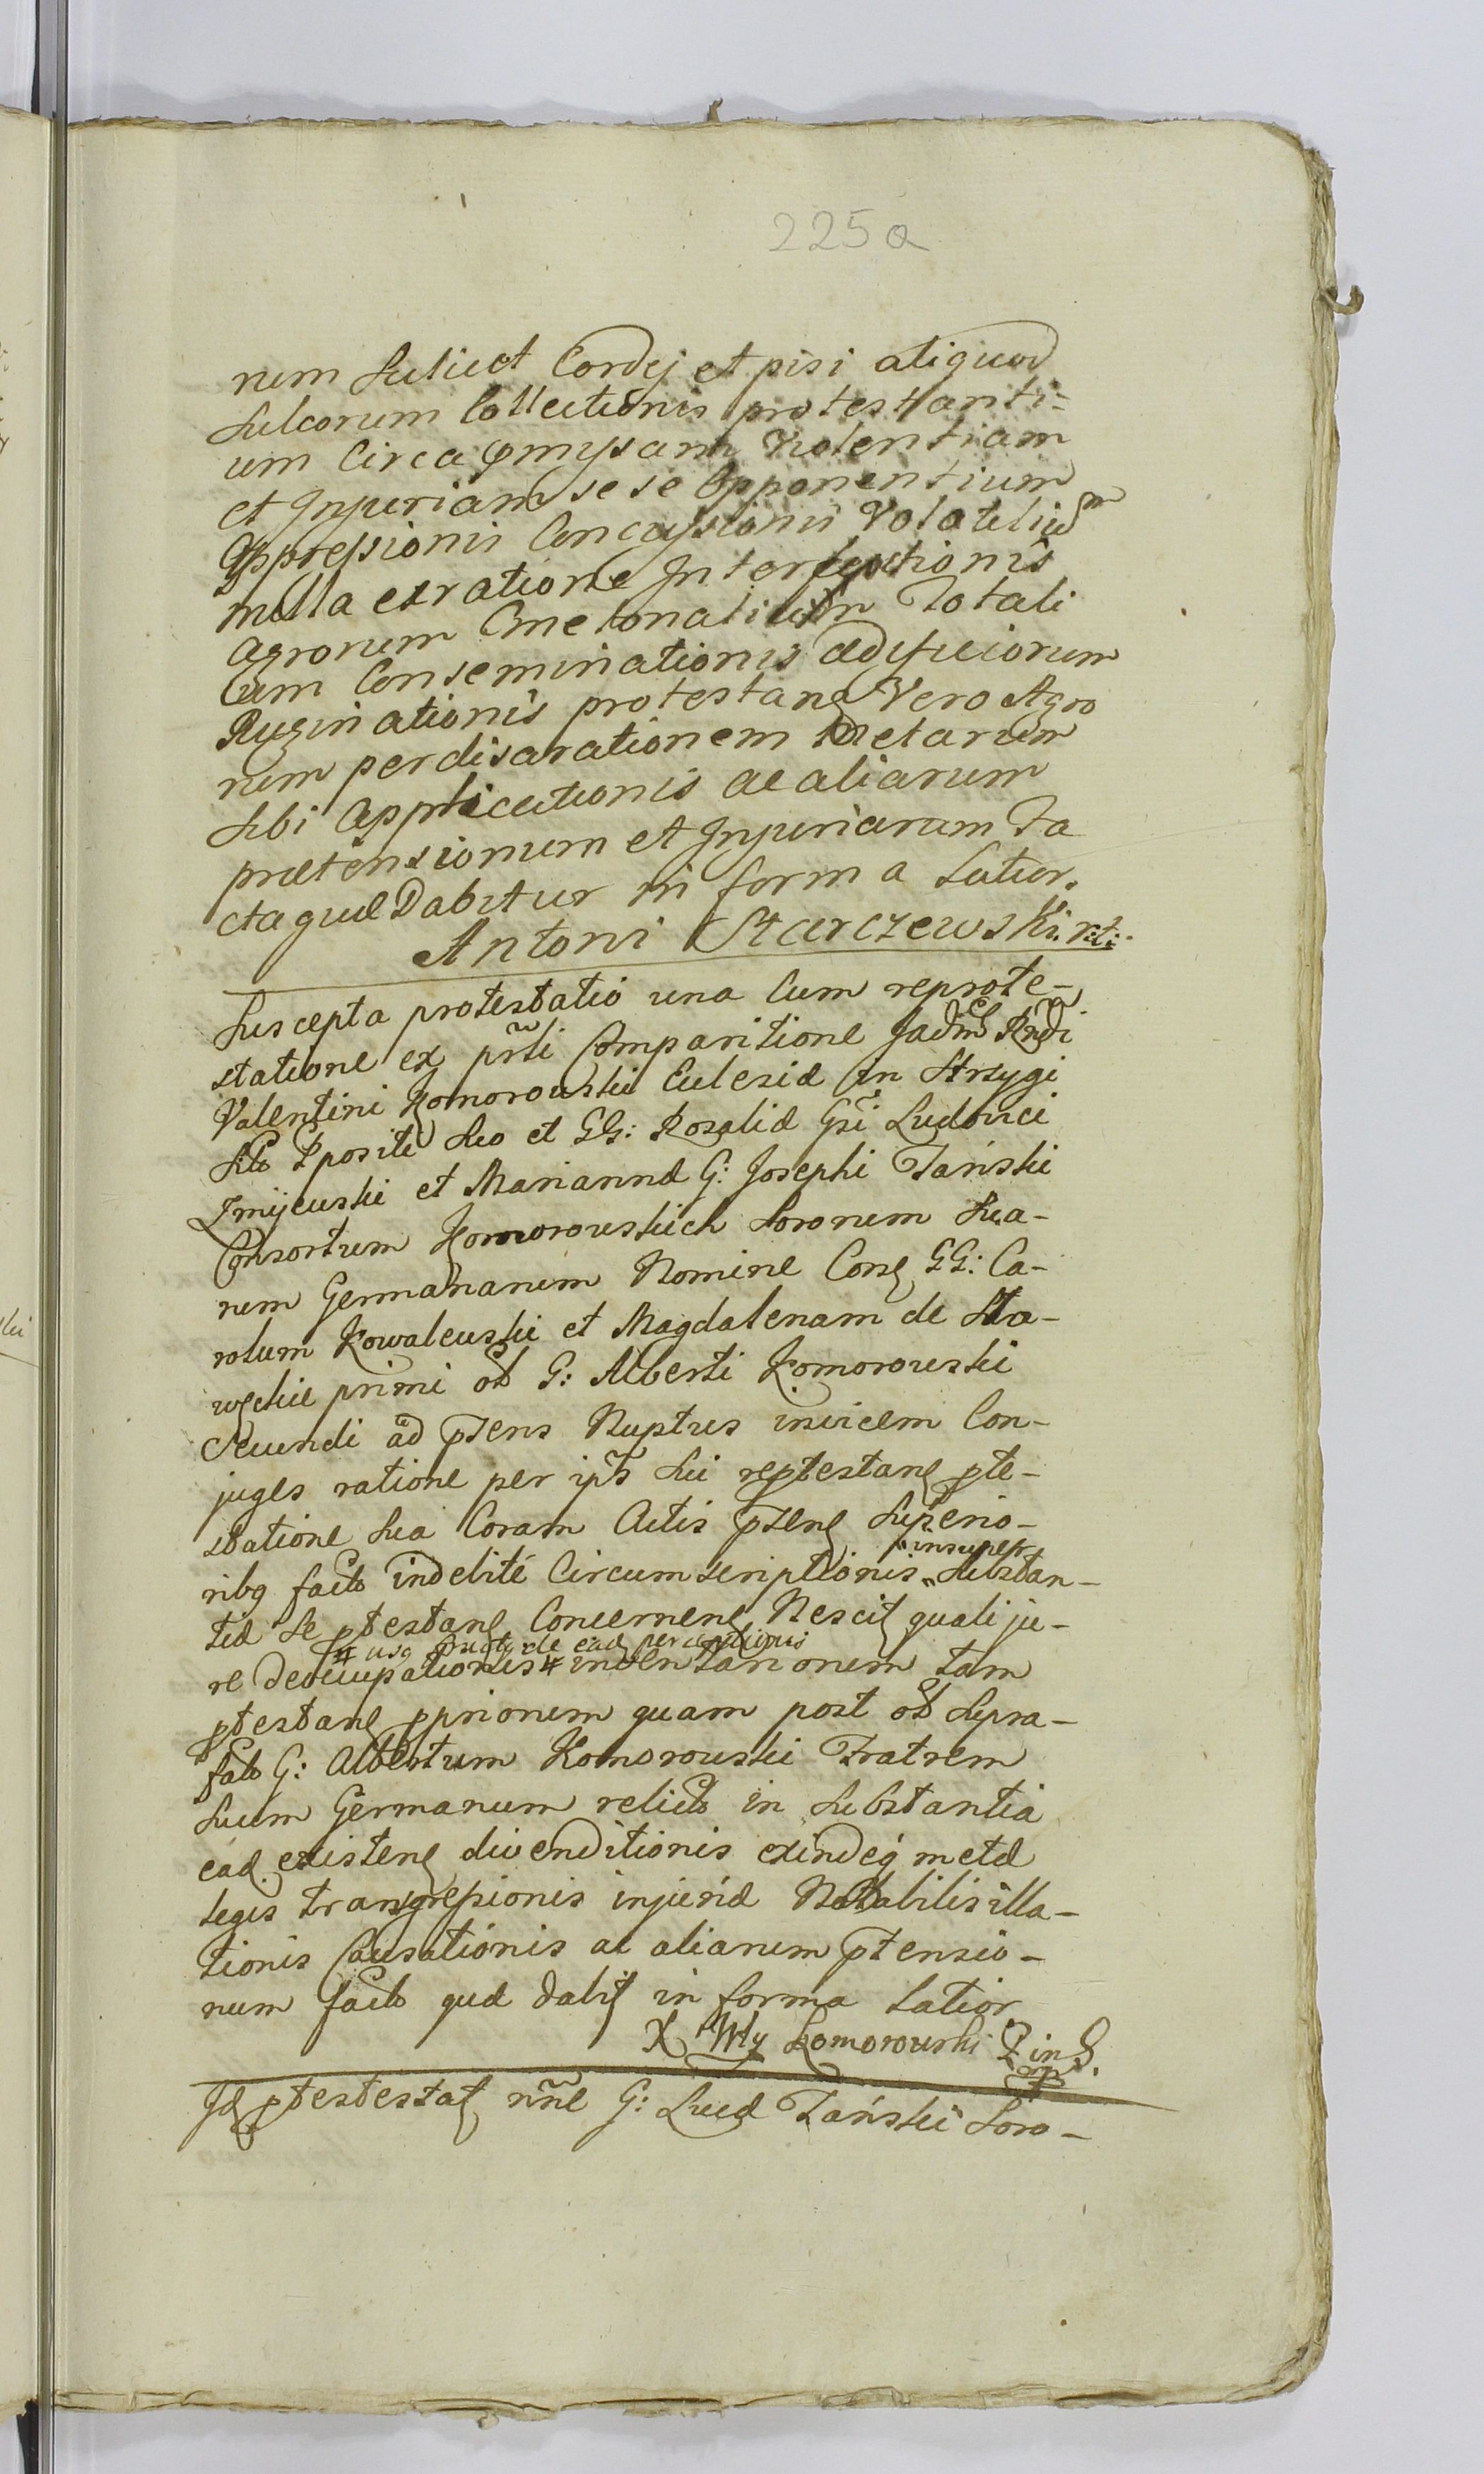 225a
num scilicet Cordej et pisi aliquod
sulcorum Collectionis protestanti=
um Circa omissam violentiam
et Injuriam se se Opponentium
Oppressionis Concussionis Volatilium
mulla ex ratione Interfectionis
agrorum Cmetonalium Totali
Cum Conseminationis ædificiorum
Ruginationis protestanꝭ Vero Agro
rum per disarationem metarum
sibi Applicationis ac aliarum
prætensionum et Injuriarum Fa
cta quæ Dabitur in forma Latior.
Antoni Starczewski
Suscepta protestatio una Cum reprote-
statione ex prñti Comparitione Jadm Rñdi
Valentini Komorowskii Eclesiæ in Strzygi
Sito Ppositi Suo et GG: Rosaliæ Gsi Ludovici
Zmijewski et Mariannæ G: Josephi Tański
Consortum Komorowskich Sororum Sua-
rum Germanarum Nomine Conꝭ GG: Ca-
rolum Kowalewski et Magdalenam de
primi ol G: Alberti Komorowski
secundi ad ptens Nuptus invicem Con-
juges ratione per ipš sui reptestanꝭ pte-
statione sua Coram Actis ptenꝭ Superio-
insuper
ribꝫ facto indebité Circumscriptionis „ Substan-
tiæ se ptestanꝭ Concernenꝭ Nescitꝭ quali ju-
# usꝫ fructꝫ de eadꝭ perceptionis
re Deoccupationis # inventarionem tam
ptestanꝭ pprionem quam post ol Supra-
fato G: Albertum Komorowski Fratrem
Suum Germanum relicto in Substantia
eadꝭ existenꝭ divenditionis exindeqꝫ metæ
legis transgressionis injuriæ Notabilis illa-
tionis Causationis ac aliarum ptensio-
num facto quæ dabitꝭ in forma latior
X Wty Komorowski P in S.
mp
Idꝭ ptestestatꝭ nñe G: Lud Tański Soro-